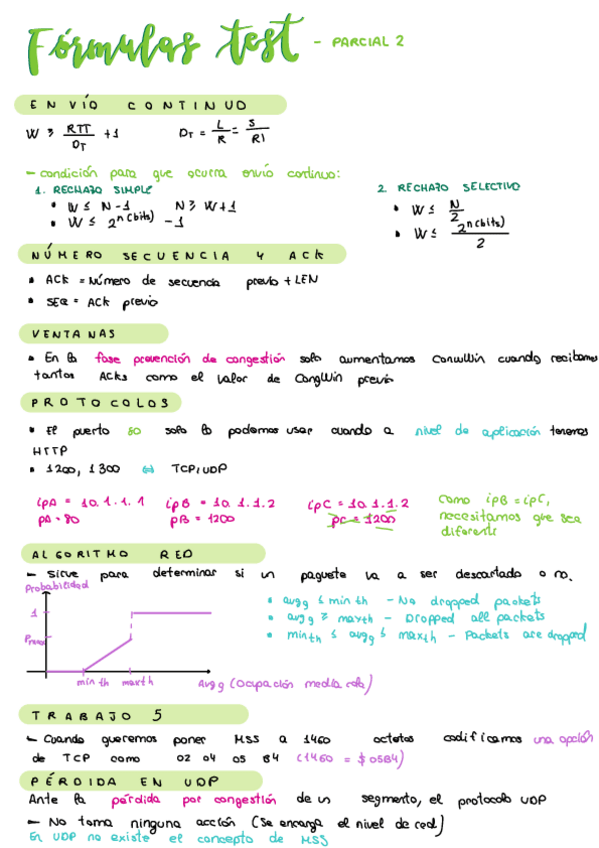 Fórmulas test - PARCIAL 2
ENVÍO CONTINUO
W ≥ RTT/DT + 1    DT = L/R = S/Ri
- condición para que ocurra envío continuo:
1. RECHAZO SIMPLE
• W ≤ N-1    N ≥ W+1
• W ≤ 2^n(bits) - 1
2. RECHAZO SELECTIVO
• W ≤ N/2
• W ≤ 2^n(bits)/2
NÚMERO SECUENCIA Y ACK
• ACK = Número de secuencia previo + LEN
• SEQ = ACK previo
VENTANAS
• En la fase prevención de congestión solo aumentamos CongWin cuando recibamos
tantos ACKs como el valor de CongWin previo
PROTOCOLOS
• El puerto 80 solo lo podemos usar cuando a nivel de aplicación tenemos
HTTP
• 1200, 1300 ⇔ TCP/UDP
ipA = 10.1.1.1    ipB = 10.1.1.2    ipC = 10.1.1.2
pA = 80    pB = 1200    pC = 1200
como ipB = ipC,
necesitamos que sea
diferente
ALGORITMO RED
- Sirve para determinar si un paquete va a ser descartado o no.
Probabilidad
1
Pmax
min th    maxth    Avgq (Ocupación media cola)
• avgq ≤ min th - No dropped packets
• avgq ≥ maxth - Dropped all packets
• minth ≤ avgq ≤ maxth - Packets are dropped
TRABAJO 5
- Cuando queremos poner MSS a 1460 octetos codificamos una opción
de TCP como 02 04 05 B4 (1460 = $05B4)
PÉRDIDA EN UDP
Ante la pérdida por congestión de un segmento, el protocolo UDP
- No toma ninguna acción (Se encarga el nivel de red)
En UDP no existe el concepto de MSS